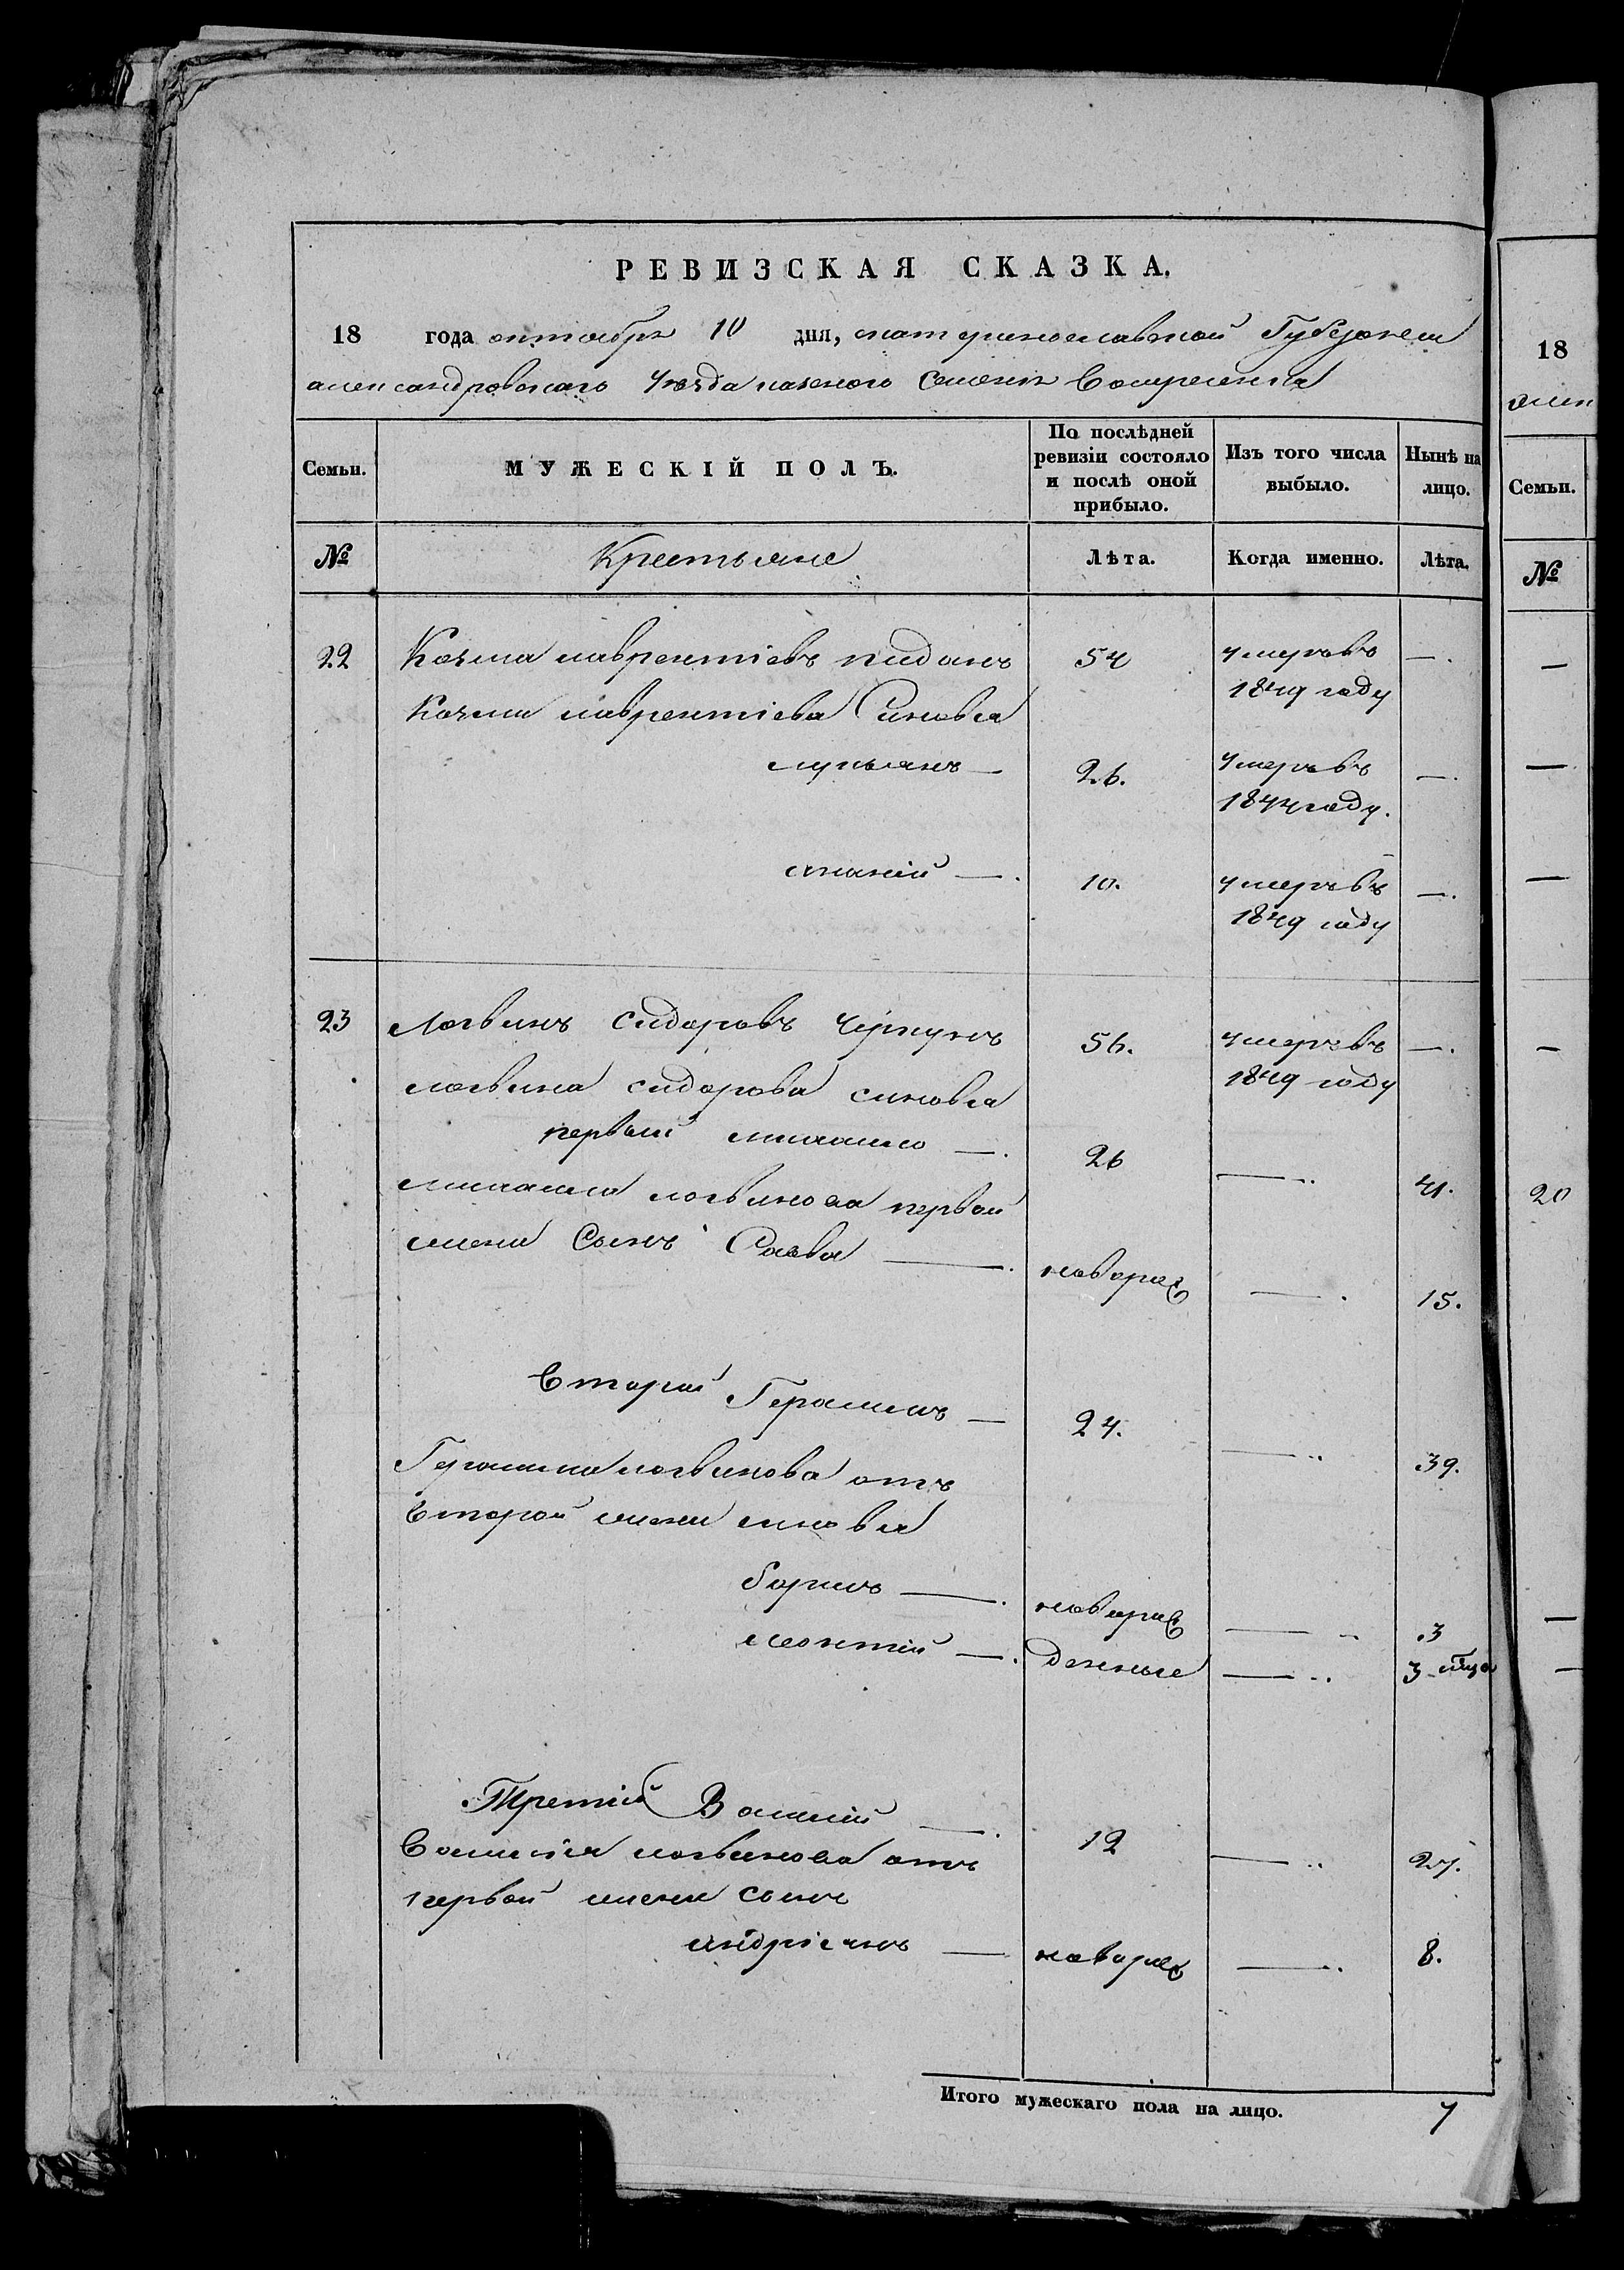 РЕВИЗСКАЯ СКАЗКА.
18 года октября 10 дня, екатеринославской Губернии
александровскаго уезда казеного Селения Воскресенка
Семьи. МУЖЕСКІЙ ПОЛЪ. По послѣдней ревизіи состояло и послѣ оной прибыло. Изъ того числа выбыло. Нынѣ на лицо.
№ Крестьяне Лѣта. Когда именно. Лѣта.
22 Козма лаврентіевъ 54 умеръ въ —.
1849 году
Козми лаврентіева Синовья
лукьянъ — 26. умеръ въ —.
1844 году.
ананій —. 10. умеръ въ —.
1849 году
23 Логвинъ сидоровъ 56. умеръ въ —.
логвина сидорова синовья 1849 году
первый михайло —. 26 —.. 41.
михайла логвинова первой
жени Сынъ Савва —. новорож —. 15.
Второй Герасимъ — 24. —.. 39.
Герасима логвинова отъ
второй жени синовья
борисъ —. новорож —.. 3
леонтій —. денные —.. 3 мѣца
Третій Василій —. 12 —.. 27.
Василія логвинова отъ
первой жени сынъ
андріянъ — новорож —.. 8.
Итого мужескаго пола на лицо. 7
18
алек
Семьи.
№
—
—
—
—
20
—
—